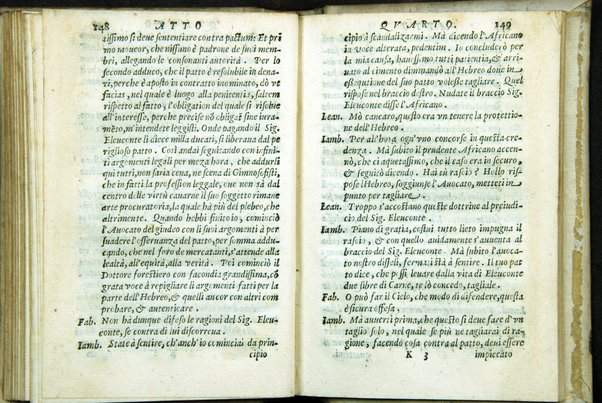 148 ATTO
tissimo si deve sententiare contra pactum: Et pri
mo naueor, che nissimo è padrone de suoi mem
bri, allegando le consonanti autorità. Per lo
secondo adduco, che il patto è resolubile in dena
ri, perche è apposito in contratto inominato, dò vt
facias, nel quale è luogo alla penitentia, saltem
rispetto al fatto; l'obligation del quale si risolue
all'interesse, perche precise nõ obligat sine iura
mẽto, m'intendete leggisti. Onde pagando il Sig.
Eleuconte si dicce milla ducati, si liberaua dal pe
riglioso patto. Così andai seguendo con infini
ti argomenti legali per meza hora, che addurli
quì tutti, non saria cena, ne scena di Gimnosofisti,
che in fatti la profession leggale, cue non sà dal
centro delle virtù cauarne il suo soggetto riman
arte procuratoria, la quale hà più del plebeo, che
altrimente. Quando hebbi finito, cominciò
l'Auocato del giudeo con li suoi argomenti à per
suadere l'osseruanza del patto, per somma addu
cando, che nel foro de mercantanti, s'attende alla
lealtà, all'equità, alla verità. Poi cominciò il
Dottore forestiero con facondia grandissima, cò
grata voce à repigliare li argomenti fatti per la
parte dell'Hebreo, & quelli ancor con altri com
probare, & autenticare.
Fab. Non hà dunque difeso le ragioni del Sig. Eleu
conte, se contra di lui discorreua.
Iamb. State à sentire, ch'anch'io cominciai da prin-
cipio
QVARTO. 149
cipio à scandalizarmi. Mà dicendo l'Africano
in voce alterata, pedentim. Io concluderò per
la mia causa, hauessimo tutti patientia, & arri
uato al cimento dimandò all'Hebreo doue in es
sequtione del suo patto volesse tagliare. Quel
rispose nel braccio destro. Nudate il braccio Sig.
Eleuconte disse l'Africano.
Lean. Mò cancaro, questo era vn tenere la protettio
ne dell'Hebreo.
Iamb. Per all'hora ogn'vno concorse in questa cre
denza. Mà subito il prudente Africano accen
nò, che ci aquetassimo, che il caso era in securo,
& seguitò dicendo. Hai tù rasoio? Hollo ris
pose l'Hebreo, soggiunse l'Auocato, metteti in
punto per tagliare.
Lean. Troppo s'accostano queste dottrine al preiudi-
cio del Sig. Eleuconte.
Iamb. Piano di gratia, costui tutto lieto impugna il
rasoio, & con quello auidamente s'auenta al
braccio del Sig. Eleuconte. Mà subito l'auoca
to nostro disselì, fermati stà à sentire. Il tuo pat
to dice, che possi leuare dalla vita di Eleuconte
due libre di Carne, te lò concedo, tagliale.
Fab. O può far il Cielo, che modo di difendere, questa
è sicura offesa.
Iamb. Mà auerti prima, che questo si deue fare d'vn
taglio solo, nel quale se più ne tagliarai di ra-
gione, facendo cosa contra al patto, deui essere
K 3 impiccato